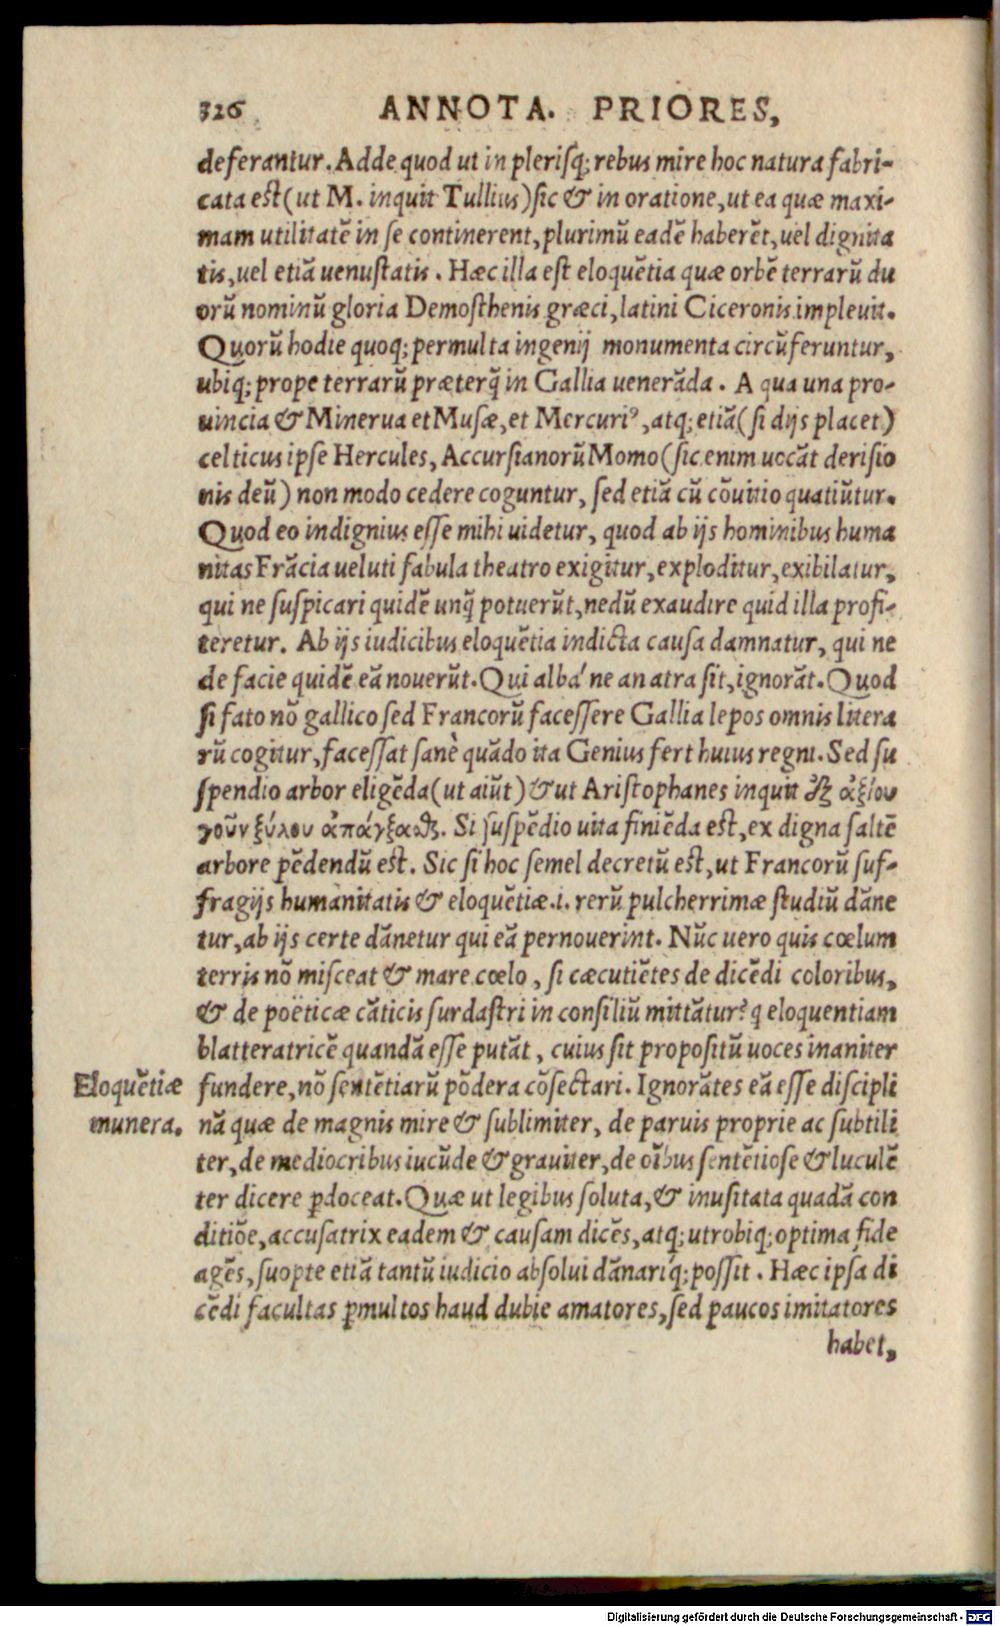 326 ANNOTA. PRIORES,
deferantur. Adde quod ut in plerisq; rebus mire hoc natura fabri-
cata est (ut M. inquit Tullius) sic & in oratione, ut ea quæ maxi-
mam utilitatē in se continerent, plurimū eadē haberēt, uel dignita
tis, uel etiā uenustatis. Hæc illa est eloquētia quæ orbē terrarū du
orū nominū gloria Demosthenis græci, latini Ciceronis impleuit.
Quorū hodie quoq; permulta ingenij monumenta circūferuntur,
ubiq; prope terrarū præterq̃ in Gallia uenerāda. A qua una pro-
uincia & Minerua et Musæ, et Mercuriꝰ, atq; etiā (si dijs placet)
celticus ipse Hercules, Accursianorū Momo (sic enim uocāt derisio
nis deū) non modo cedere coguntur, sed etiā cū cōuitio quatiūtur.
Quod eo indignius esse mihi uidetur, quod ab ijs hominibus huma
nitas Frācia ueluti fabula theatro exigitur, exploditur, exibilatur,
qui ne suspicari quidē unq̃ potuerūt, nedū exaudire quid illa profi-
teretur. Ab ijs iudicibus eloquētia indicta causa damnatur, qui ne
de facie quidē eā nouerūt. Qui albá ne an atra sit, ignorāt. Quod
si fato nō gallico sed Francorū facessere Gallia lepos omnis litera
rū cogitur, facessat sanè quādo ita Genius fert huius regni. Sed su
spendio arbor eligēda (ut aiūt) & ut Aristophanes inquit ἀξίου
γοῦν ξύλου ἀπάγξαϑ. Si suspēdio uita finiēda est, ex digna saltē
arbore pēdendū est. Sic si hoc semel decretū est, ut Francorū suf-
fragijs humanitatis & eloquētiæ .i. rerū pulcherrimæ studiū dāne
tur, ab ijs certe dānetur qui eā pernouerint. Nūc uero quis cœlum
terris nō misceat & mare cœlo, si cæcutiētes de dicēdi coloribus,
& de poëticæ cāticis surdastri in consiliū mittātur? q̃ eloquentiam
blatteratricē quandā esse putāt, cuius sit propositū uoces inaniter
Eloquētiæ munera.
fundere, nō sentētiarū pōdera cōsectari. Ignorātes eā esse discipli
nā quæ de magnis mire & sublimiter, de paruis proprie ac subtili
ter, de mediocribus iucūde & grauiter, de oībus sentētiose & luculē
ter dicere ꝑdoceat. Quæ ut legibus soluta, & inusitata quadā con
ditiōe, accusatrix eadem & causam dicēs, atq; utrobiq; optima fide
agēs, suopte etiā tantū iudicio absolui dānariq́; possit. Hæc ipsa di
cēdi facultas ꝑmultos haud dubie amatores, sed paucos imitatores
habet,
Digitalisierung gefördert durch die Deutsche Forschungsgemeinschaft - DFG